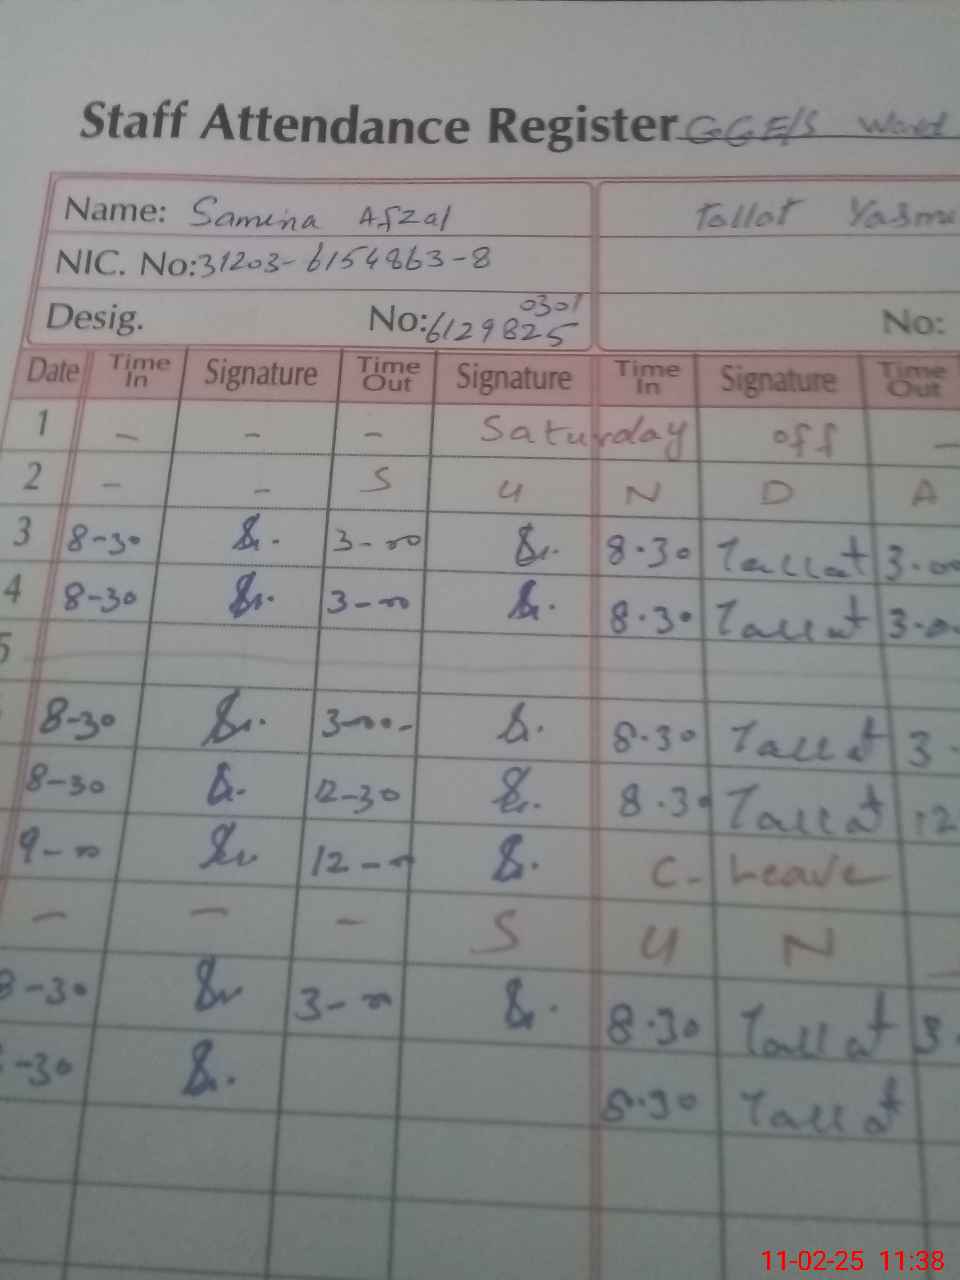 Staff Attendance Register GGE/S
Name: Samina Afzal Tallat
NIC. No: 31203-6154863-8
0301
Desig. No: 6129825 No:
Date Time In Signature Time Out Signature Time In Signature Time Out
1 – – – Saturday off –
2 – – S U N D A
3 8-30 3-00 8.30 Tallat 3.00
4 8-30 3-00 8.30 Tallat 3.0
5
8-30 3-00- 8.30 Tallat 3.
8-30 12-30 8.30 Tallat 12
9-00 12-- C- Leave
– – – S U N
8-30 3-00 8.30 Tallat 3.
-30 8.30 Tallat
11-02-25 11:38